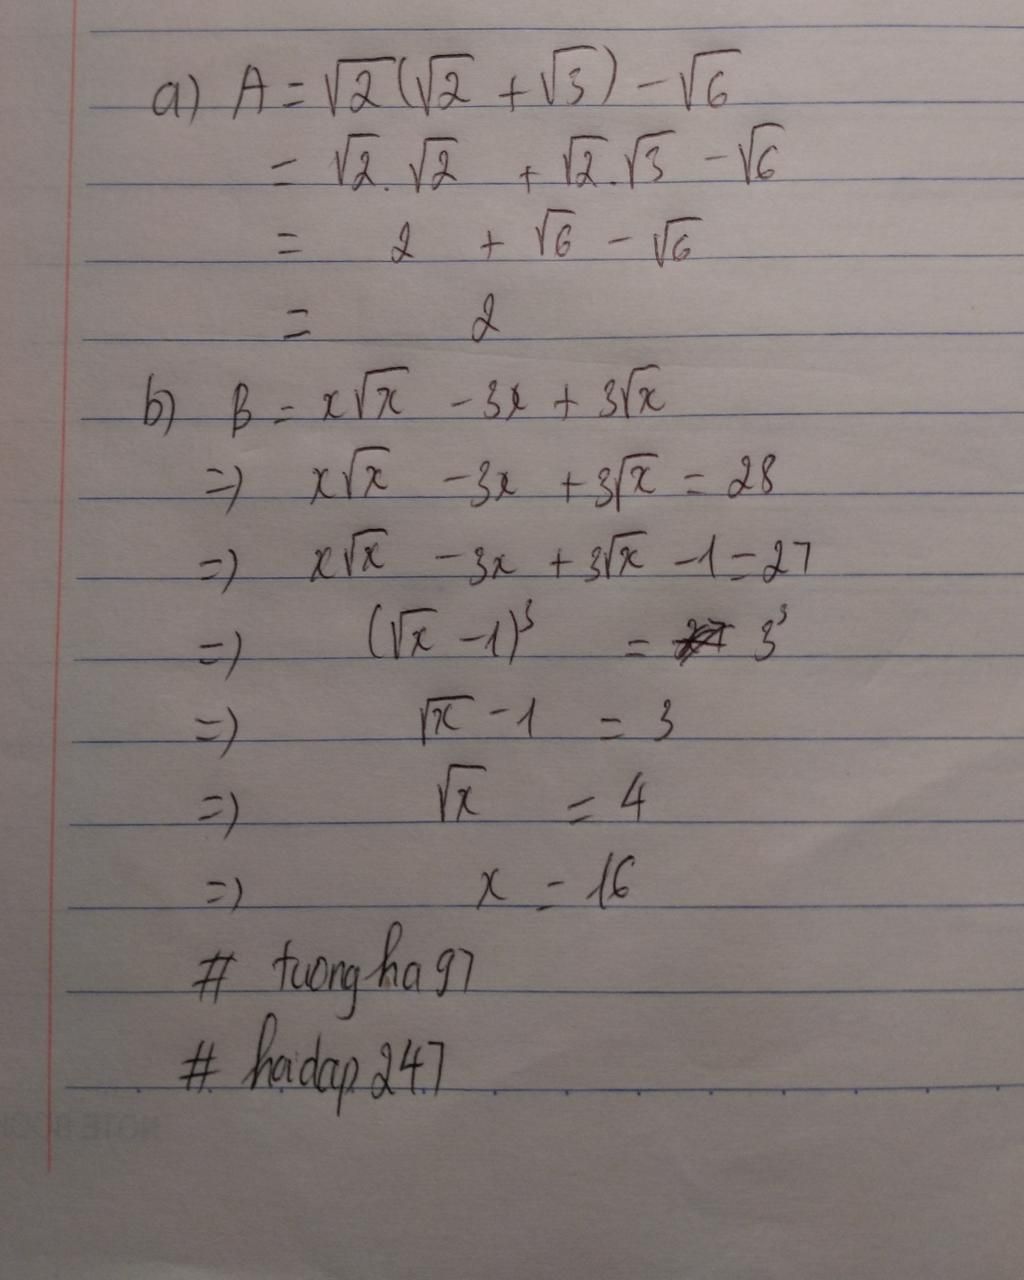 a) A = √2(√2 + √3) - √6
= √2.√2 + √2.√3 - √6
= 2 + √6 - √6
= 2
b) B = x√x - 3x + 3√x
=) x√x - 3x + 3√x = 28
=) x√x - 3x + 3√x - 1 = 27
=) (√x - 1)³ = 3³
=) √x - 1 = 3
=) √x = 4
=) x = 16
# tuongha97
# hoidap247